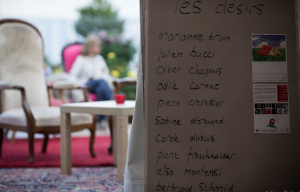 les désirs
marianne brun
julien bucci
Oliver chappuis
Odile Cornuz
pierre crevoisier
Sabine dormond
Carole dubuis
pierre fankhauser
elsa montensi
bertrand Schmid